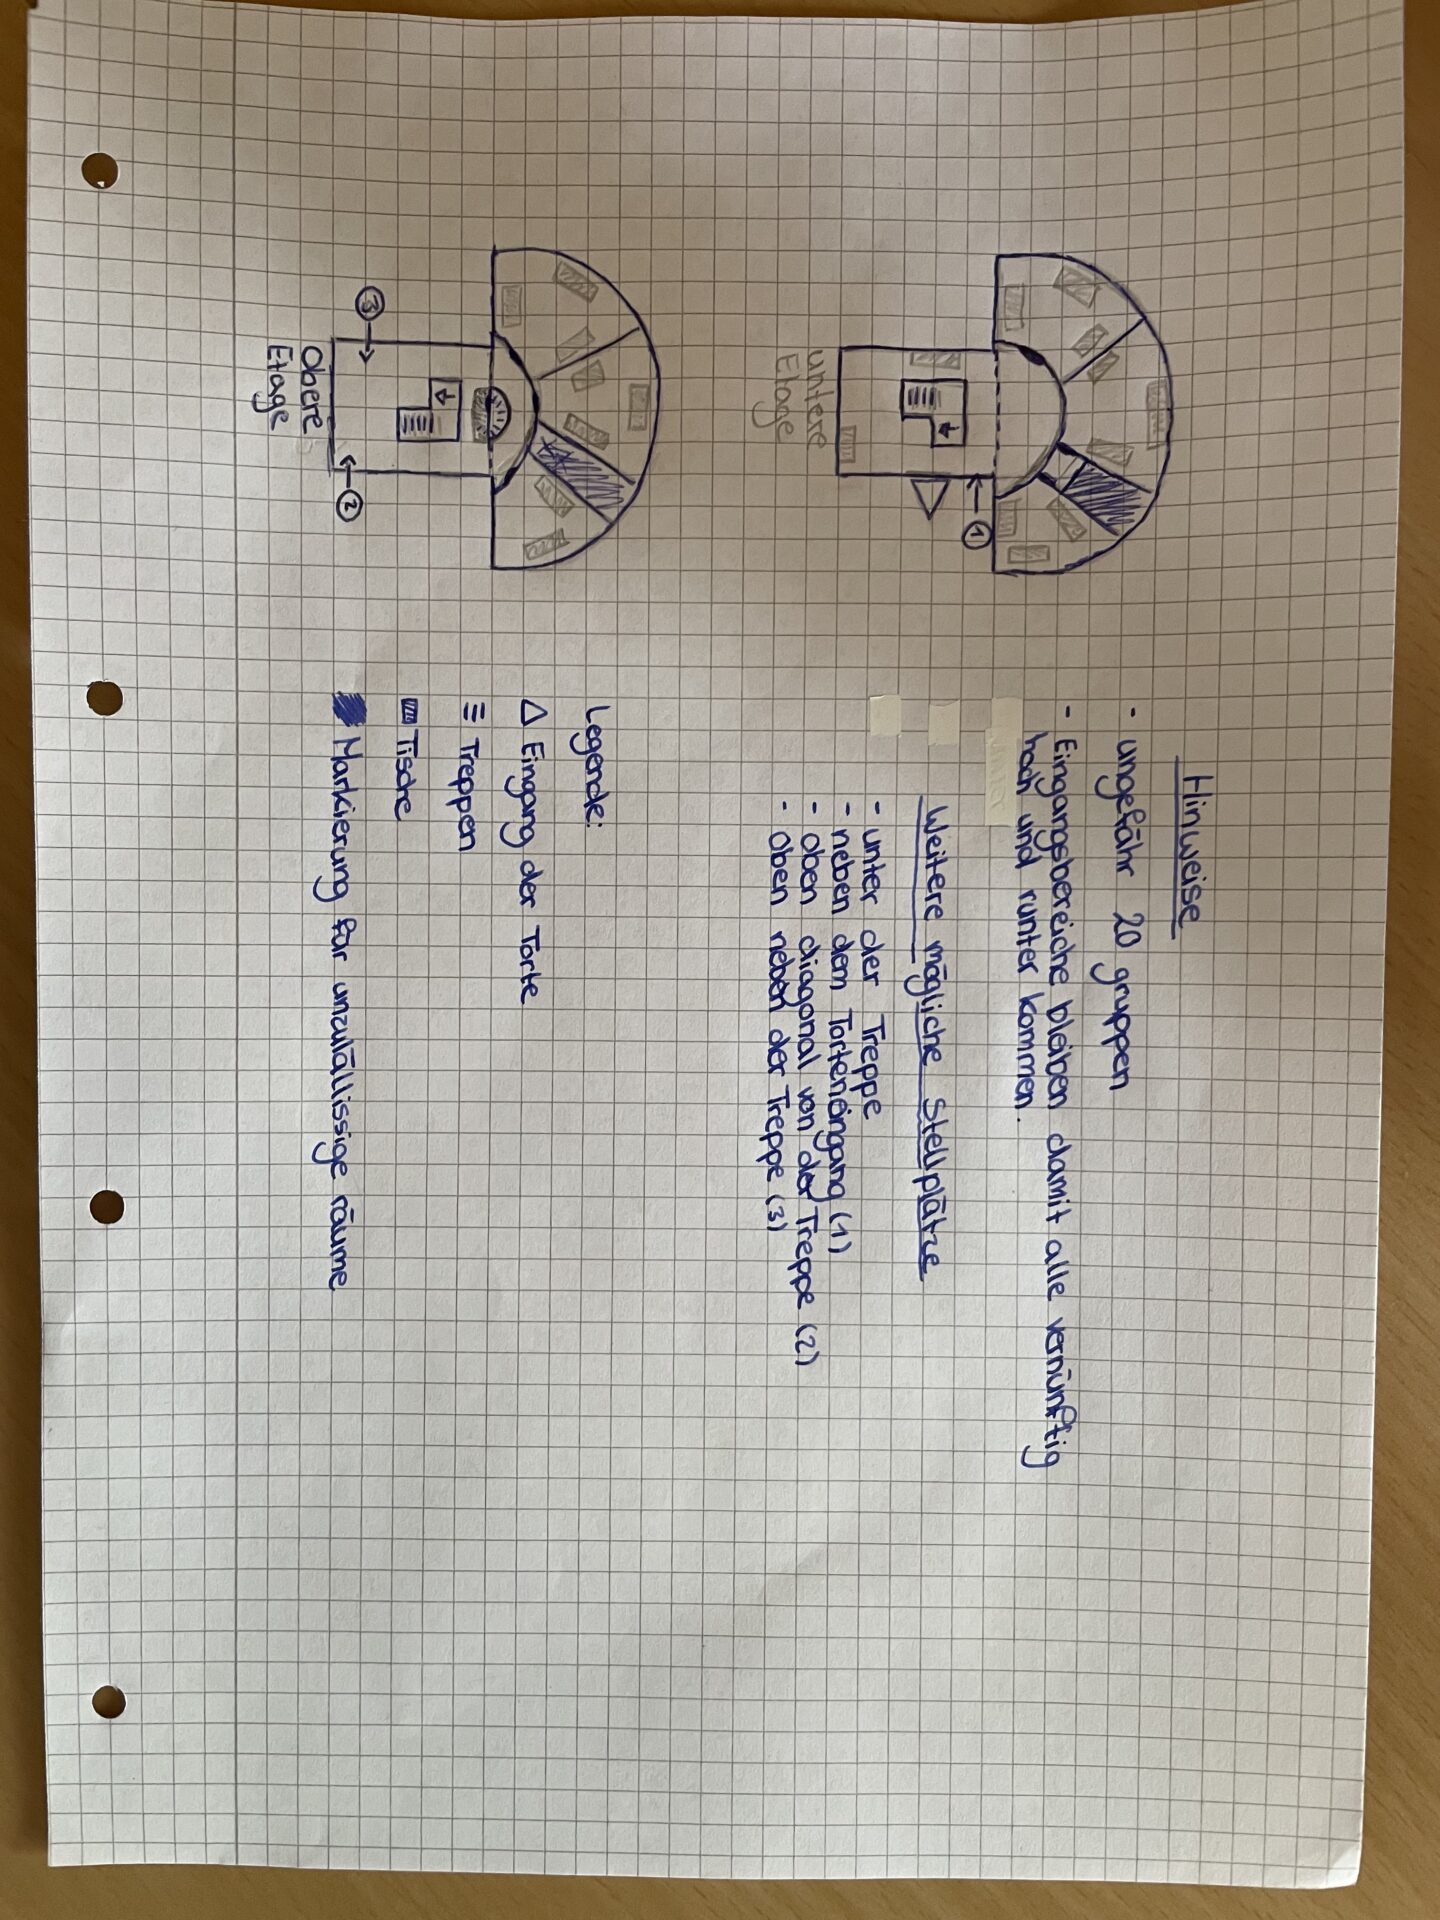 Hinweise
- ungefähr 20 gruppen
- Eingangsbereiche bleiben damit alle vernünftig
hoch und runter kommen.
Weitere mögliche Stellplätze
- unter der Treppe
- neben dem Torteneingang (1)
- oben diagonal von der Treppe (2)
- oben neben der Treppe (3)
Legende:
Eingang der Torte
Treppen
Tische
Markierung für unzulällissige räume
untere
Etage
1
Obere
Etage
3
2